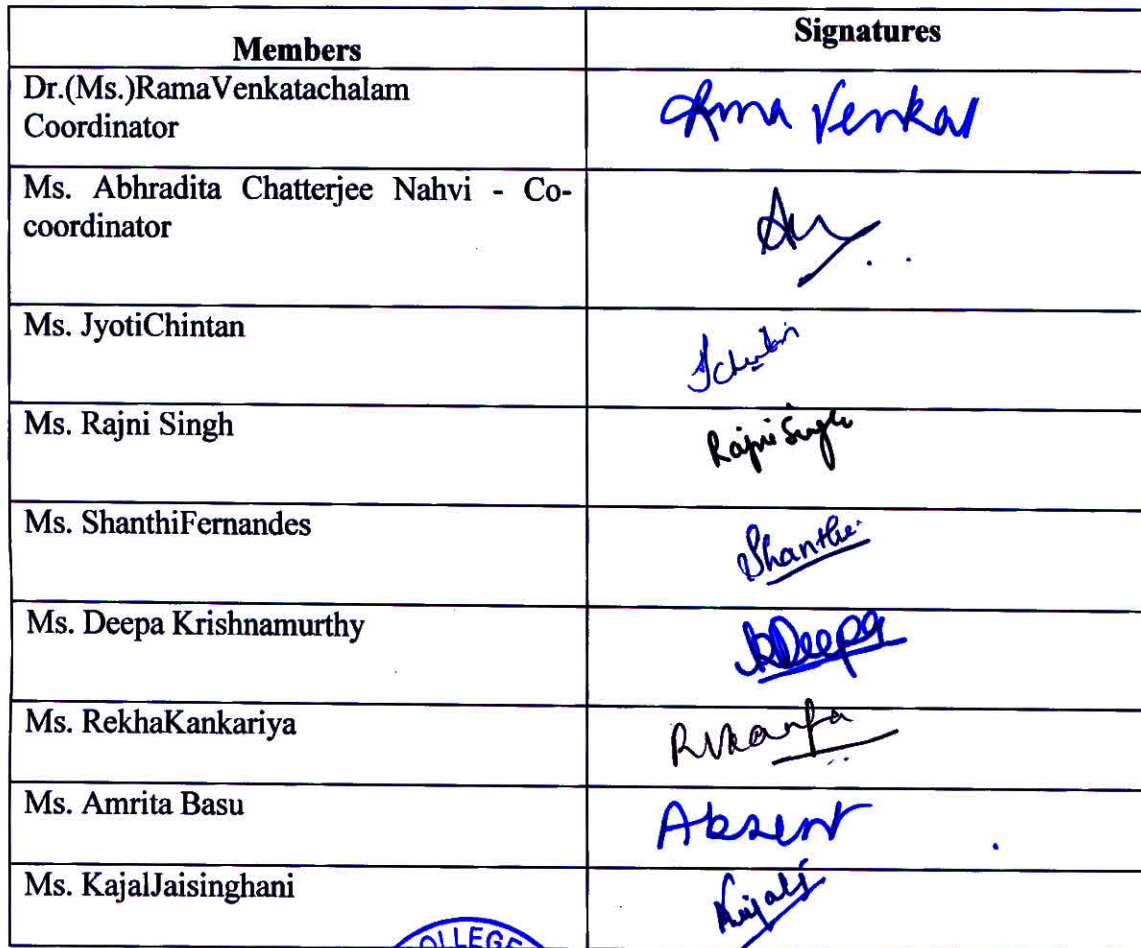 Members
Signatures
Dr.(Ms.)RamaVenkatachalam
Coordinator
Rma Venkat
Ms. Abhradita Chatterjee Nahvi - Co-
coordinator
Ms. JyotiChintan
Ms. Rajni Singh
Rajni Singh
Ms. ShanthiFernandes
Shanthi
Ms. Deepa Krishnamurthy
KDeepa
Ms. RekhaKankariya
Ms. Amrita Basu
Absent
Ms. KajalJaisinghani
KajalJ
COLLEGE